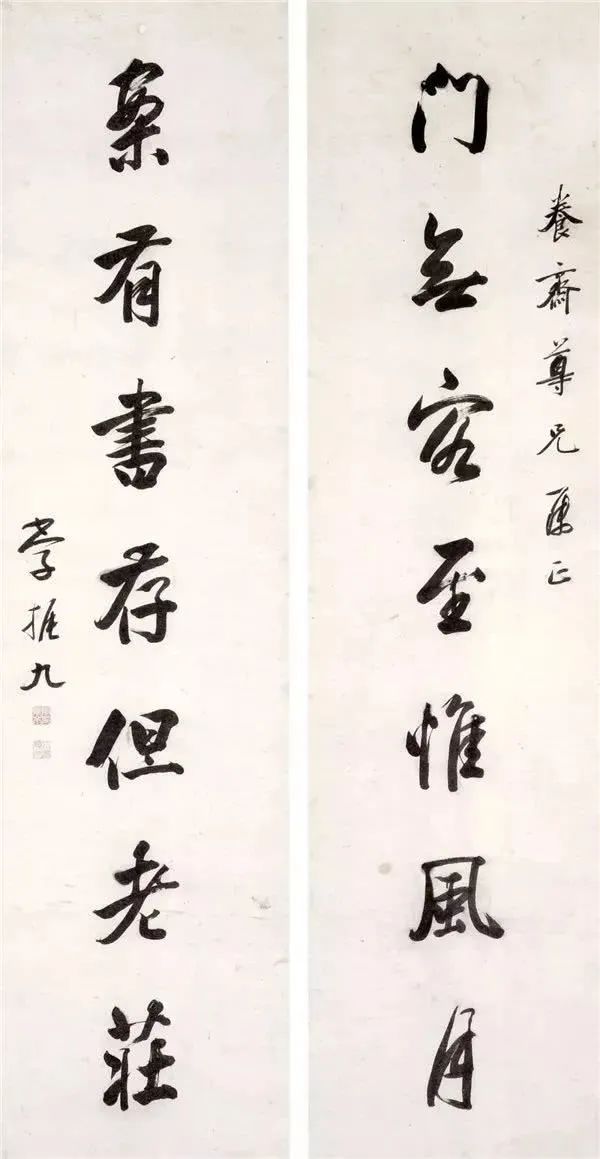 養齋尊兄屬正
門無客至惟風月
案有書存但老莊
九